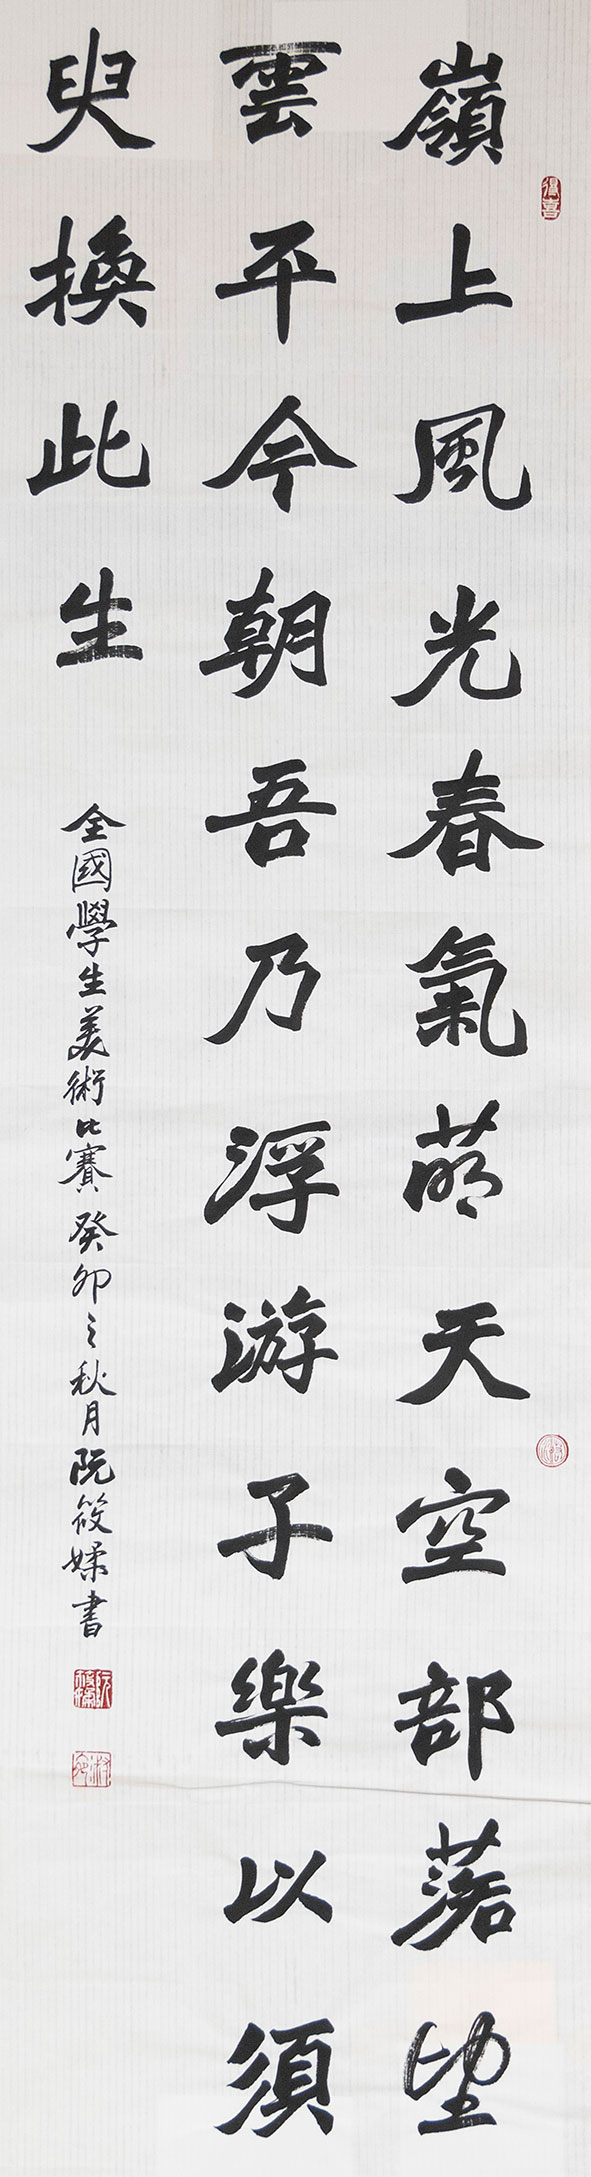 嶺上風光春氣萌天空部落望
雲平今朝吾乃浮游子樂以須
臾換此生
全國學生美術比賽癸卯之秋月阮筱媃書